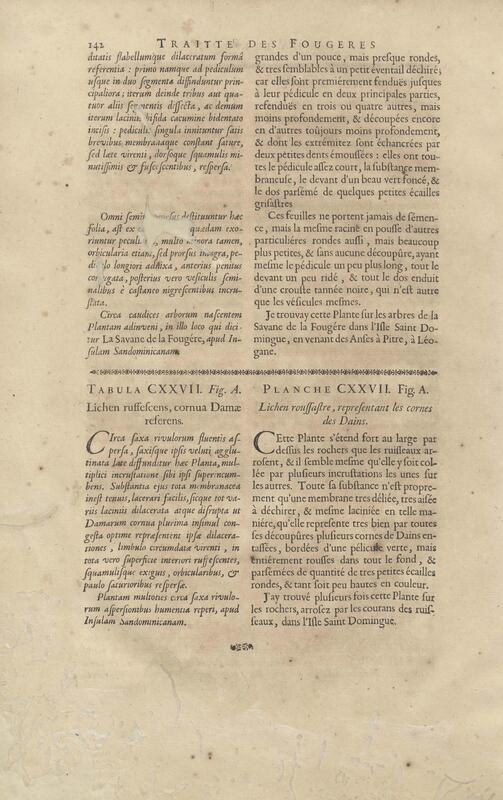 142 TRAITTE DES FOUGERES
ditatis flabellumque dilaceratum formâ
referentia : primo namque ad pediculum
usque in duo segmenta diffinduntur prin-
cipaliora; iterum deinde tribus aut qua-
tuor aliis segmentis dissecta, ac demum
iterum laciniâ bifida cacumine bidentato
incisi : pediculi singula innituntur satis
brevibus membranaque constant sature,
sed late virenti, dorsoque squamulis mi-
nutissimis & fuscescentibus, respersa.
Omni semine prorsus destituuntur hæc
folia, ast ex quædam exo-
riuntur peculi multo minora tamen,
orbicularia etiam, sed prorsus integra, pe-
diculo longiori adfixa, anterius penitus
corrugata, posterius vero vesiculis semi-
nalibus è castaneo nigrescentibus incru-
stata.
Circa caudices arborum nascentem
Plantam adinveni, in illo loco qui dici-
tur La Savane de la Fougére, apud In-
sulam Sandominicanam.
grandes d'un pouce, mais presque rondes,
& tres semblables à un petit éventail déchiré;
car elles sont premiérement fenduës jusques
à leur pédicule en deux principales parties,
refenduës en trois ou quatre autres, mais
moins profondement, & découpées encore
en d'autres toûjours moins profondement,
& dont les extrémitez sont échancrées par
deux petites dents émoussées : elles ont tou-
tes le pédicule assez court, la substance mem-
braneuse, le devant d'un beau vert foncé, &
le dos parsemé de quelques petites écailles
grisastres
Ces feuilles ne portent jamais de sémen-
ce, mais la mesme racine en pousse d'autres
particuliéres rondes aussi, mais beaucoup
plus petites, & sans aucune découpûre, ayant
mesme le pédicule un peu plus long, tout le
devant un peu ridé, & tout le dos enduit
d'une crouste tannée noire, qui n'est autre
que les vésicules mesmes.
Je trouvay cette Plante sur les arbres de la
Savane de la Fougére dans l'Isle Saint Do-
mingue, en venant des Anses à Pitre, à Léo-
gane.
TABULA CXXVII. Fig. A.
Lichen ruffescens, cornua Damæ
referens.
Circa saxa rivulorum fluentis as-
persa, saxisque ipsis veluti agglu-
tinata late diffunditur hæc Planta, mul-
tiplici incrustatione sibi ipsi superincum-
bens. Substantia ejus tota membranacea
inest tenuis, lacerari facilis, sicque tot va-
riis laciniis dilacerata atque disrupta ut
Damarum cornua plurima insimul con-
gesta optime repræsentent ipsæ dilacera-
tiones, limbulo circumdatæ virenti, in
tota vero superficie interiori ruffescentes,
squamulisque exiguis, orbicularibus, &
paulo saturioribus respersæ.
Plantam multoties circa saxa rivulo-
rum aspersionibus humentia reperi, apud
Insulam Sandominicanam.
PLANCHE CXXVII. Fig. A.
Lichen roussastre, representant les cornes
des Dains.
Cette Plante s'étend fort au large par
dessus les rochers que les ruisseaux ar-
rosent, & il semble mesme qu'elle y soit col-
lée par plusieurs incrustations les unes sur
les autres. Toute sa substance n'est propre-
ment qu'une membrane tres déliée, tres aisée
à déchirer, & mesme laciniée en telle ma-
niére, qu'elle represente tres bien par toutes
ses découpûres plusieurs cornes de Dains en-
tassées, bordées d'une pélicule verte, mais
entiérement rousses dans tout le fond, &
parsemées de quantité de tres petites écailles
rondes, & tant soit peu hautes en couleur.
J'ay trouvé plusieurs fois cette Plante sur
les rochers, arrosez par les courans des ruis-
seaux, dans l'Isle Saint Domingue.